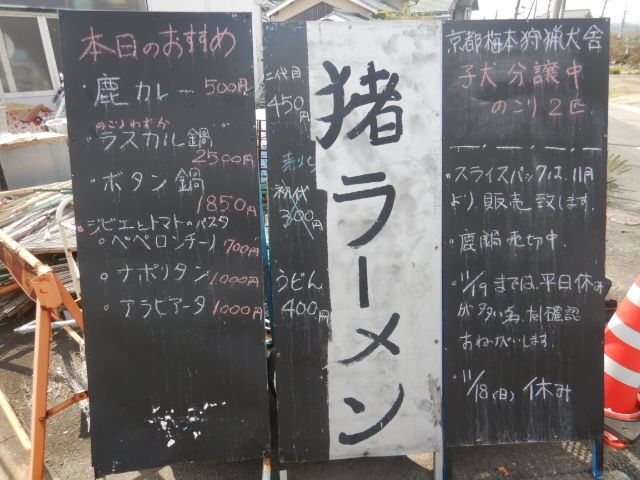 本日のおすすめ
・鹿カレー 500円
のこりわずか
・ラスカル鍋
2500円
・ボタン鍋
1850円
・ジビエとトマトのパスタ
・ペペロンチーノ 700円
・ナポリタン 1000円
・アラビアータ 1000円
二代目
450円
売り切れ
初代
300円
うどん
400円
猪ラーメン
京都梅本狩猟犬舎
子犬分譲中
のこり2匹
・スライスパックは、11月
より、販売致します。
・鹿鍋売切中。
・11/9までは、平日休み
が多い為、ご確認
おねがいします。
・11/18(日) 休み